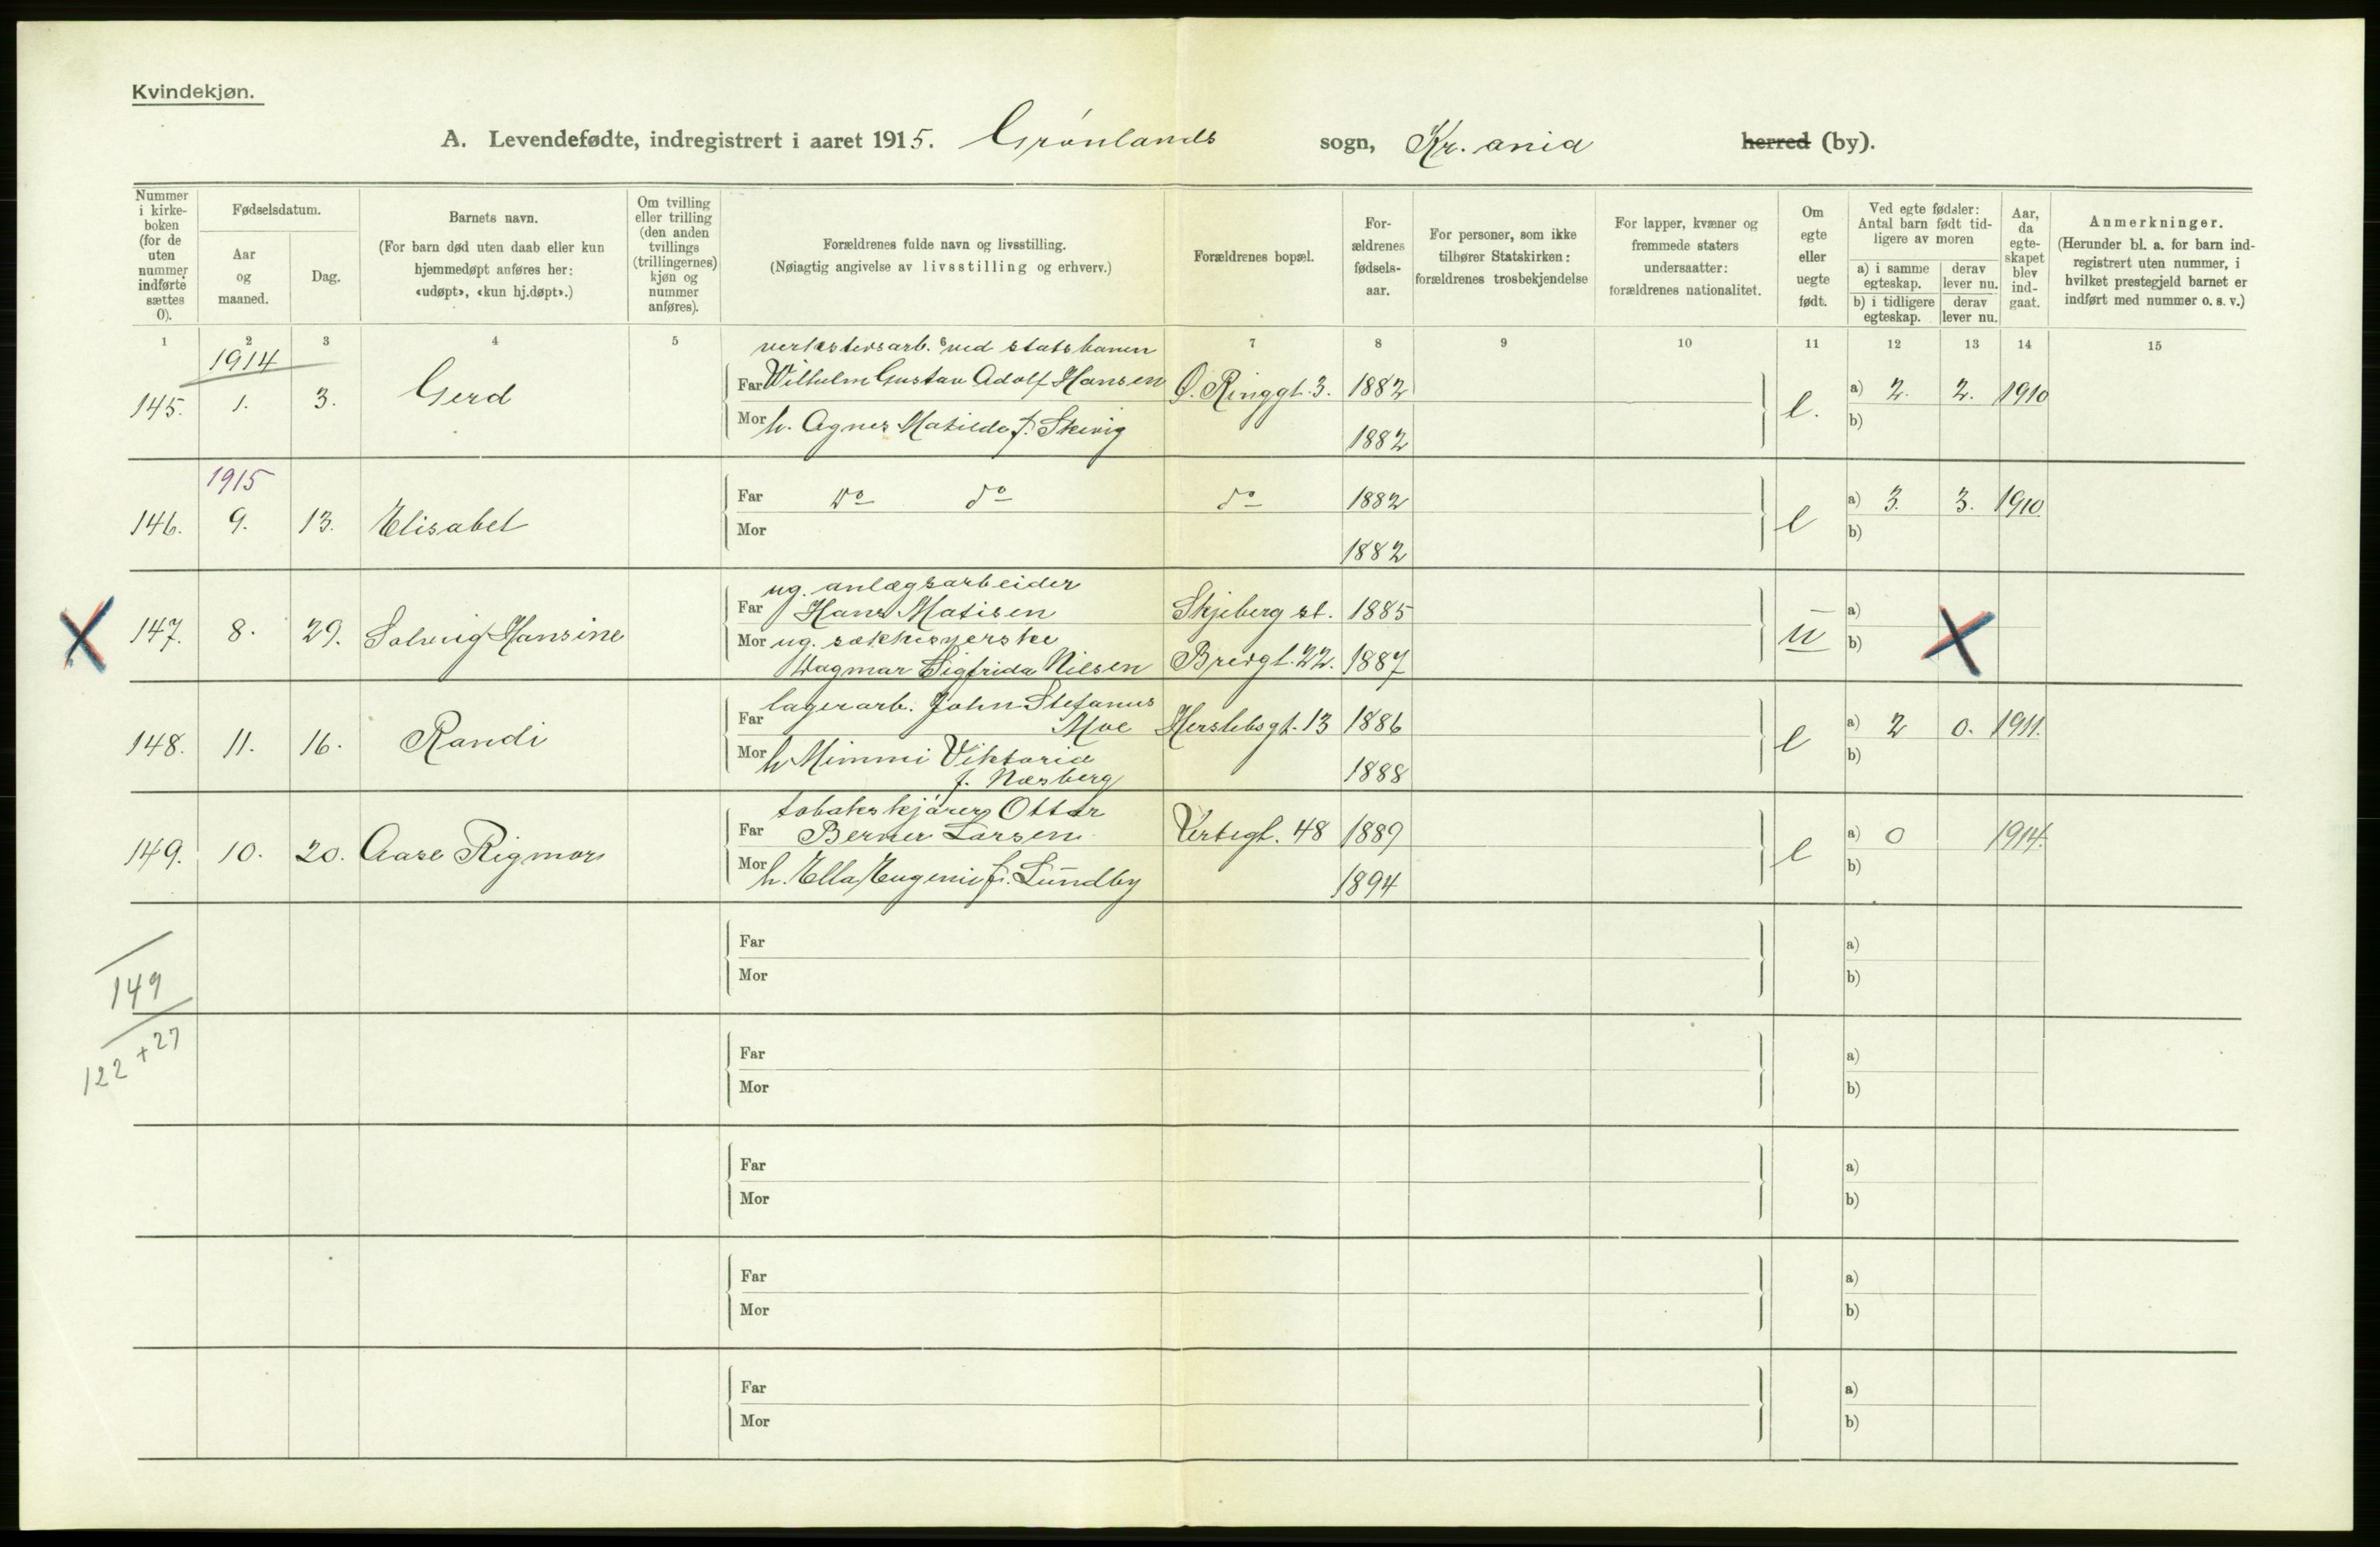 Kvindekjøn.
A. Levendefødte, indregistrert i aaret 1915. Grønlands sogn, Kr.ania herred (by).
Nummer i kirkeboken (for de uten nummer indførte sættes 0).
Fødselsdatum.
Aar og maaned.
Dag.
Barnets navn.
(For barn død uten daab eller kun hjemmedøpt anføres her: «udøpt», «kun hj.døpt».)
Om tvilling eller trilling (den anden tvillings (trillingernes) kjøn og nummer anføres).
Forældrenes fulde navn og livsstilling.
(Nøiagtig angivelse av livsstilling og erhverv.)
Forældrenes bopæl.
For-ældrenes fødsels-aar.
For personer, som ikke tilhører Statskirken: forældrenes trosbekjendelse
For lapper, kvæner og fremmede staters undersaatter: forældrenes nationalitet.
Om egte eller uegte født.
Ved egte fødsler: Antal barn født tid-ligere av moren
a) i samme egteskap.
derav lever nu.
b) i tidligere egteskap.
derav lever nu.
Aar, da egte-skapet blev ind-gaat.
Anmerkninger.
(Herunder bl. a. for barn ind-registrert uten nummer, i hvilket prestegjeld barnet er indført med nummer o. s. v.)
1 2 3 4 5 6 7 8 9 10 11 12 13 14 15
1914
verkstedsarb. ved statsbanen
145. 1. 3. Gerd Far Wilhelm Gustav Adolf Hansen Ø. Ringgt. 3. 1882 e. a) 2. 2. 1910
Mor h. Agnes Matilda f. Skevig 1882 b)
1915
146. 9. 13. Elisabet Far Do do do 1882 e a) 3. 3. 1910
Mor 1882 b)
ug. anlægsarbeider
147. 8. 29. Solveig Hansine Far Hans Matisen Skjeberg st. 1885 u a)
Mor ug. sækkesyerske b)
Dagmar Sigfrida Nilsen Bredgt. 22. 1887
lagerarb. John Stefanus
148. 11. 16. Randi Far Moe Herslebsgt. 13 1886 e a) 2 0. 1911.
Mor h Mimmi Viktoria b)
f. Næsberg 1888
tobakskjører Ottar
149. 10. 20. Aase Rigmor Far Berner Larsen Urtegt. 48 1889 e a) 0 1914.
Mor h. Ella Eugenie f. Lundby 1894 b)
Far a)
149
Mor b)
122 + 27
Far a)
Mor b)
Far a)
Mor b)
Far a)
Mor b)
Far a)
Mor b)